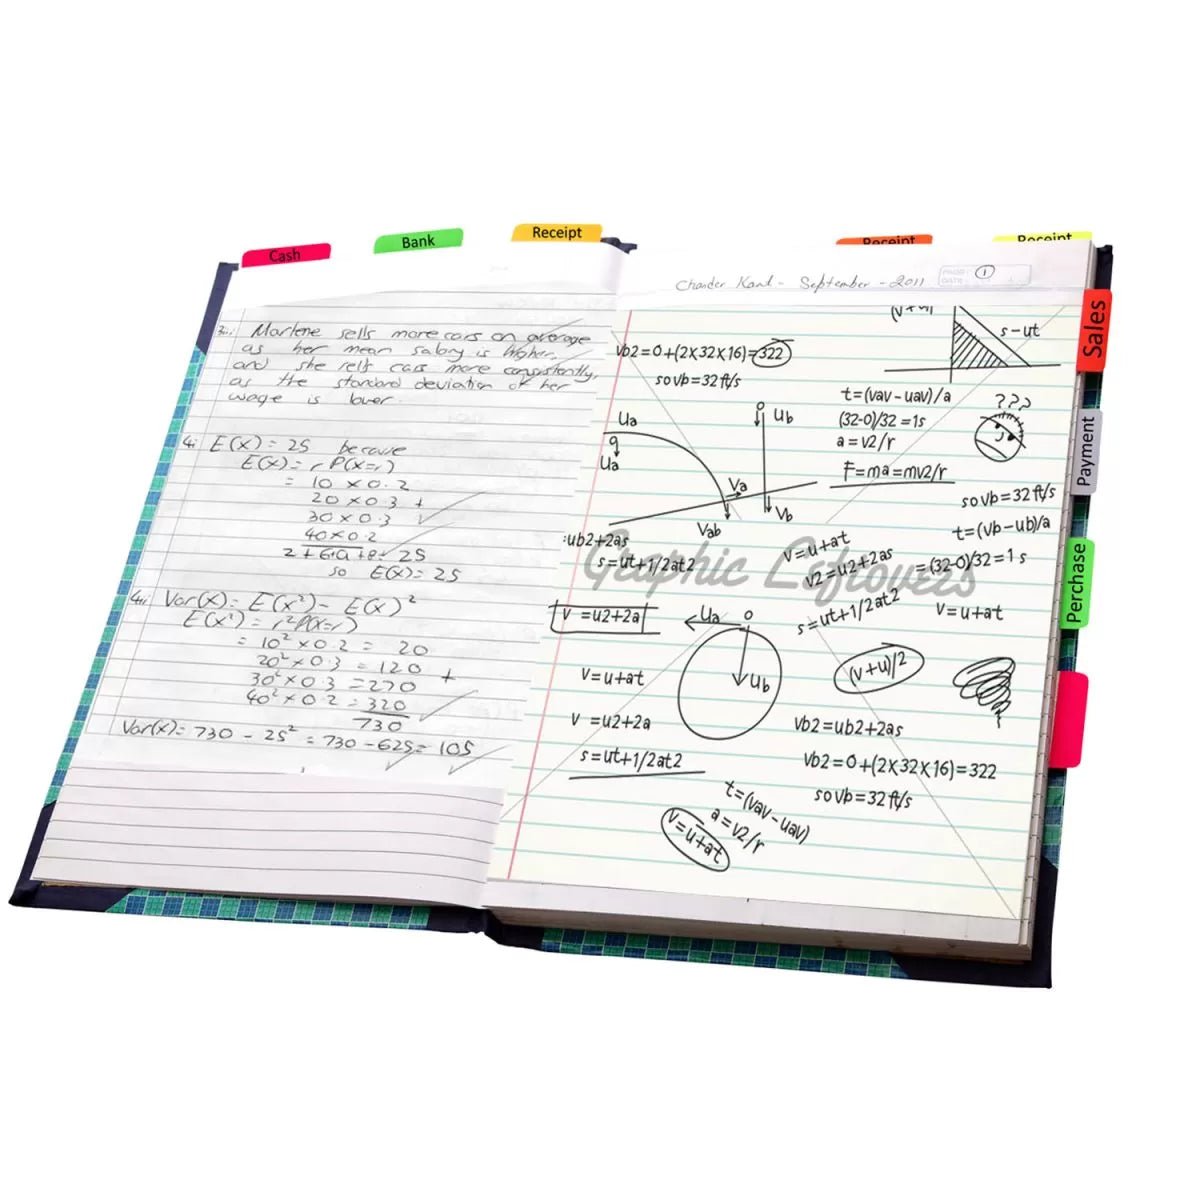 Cash
Bank
Receipt
Receipt
Receipt
Sales
Payment
Perchase
Marlene sells more cars on average
as her mean salary is higher,
and she sells cars more consistently,
as the standard deviation of her
wage is lower.
4i E(X) = 25 because
E(X) = r P(X=r)
= 10 x 0.2
20 x 0.3 +
30 x 0.3
40 x 0.2
2 + 6 + 9 + 8 = 25
so E(X) = 25
4ii Var(X) = E(X²) - E(X)²
E(X²) = r²P(X=r)
= 10² x 0.2 = 20
20² x 0.3 = 120 +
30² x 0.3 = 270
40² x 0.2 = 320
730
Var(X) = 730 - 25² = 730 - 625 = 105
Chander Kant - September - 2011
PAGE: 1
DATE:
(v+u)
s-ut
vb2=0+(2x32x16)=322
so vb=32 ft/s
t=(vav-uav)/a
(32-0)/32=1s
a=v2/r
F=ma=mv2/r
???
Ua
g
Ua
Ub
Va
Vab
Vb
so vb=32 ft/s
t=(vb-ub)/a
=(32-0)/32=1s
v=u+at
=ub2+2as
s=ut+1/2at2
v=u+at
v2=u2+2as
s=ut+1/2at2
Graphic Leftovers
v=u2+2a
Ua
Ub
v=u+at
v=u2+2a
s=ut+1/2at2
(v+u)/2
vb2=ub2+2as
vb2=0+(2x32x16)=322
so vb=32 ft/s
t=(vav-uav)
a=v2/r
v=u+at